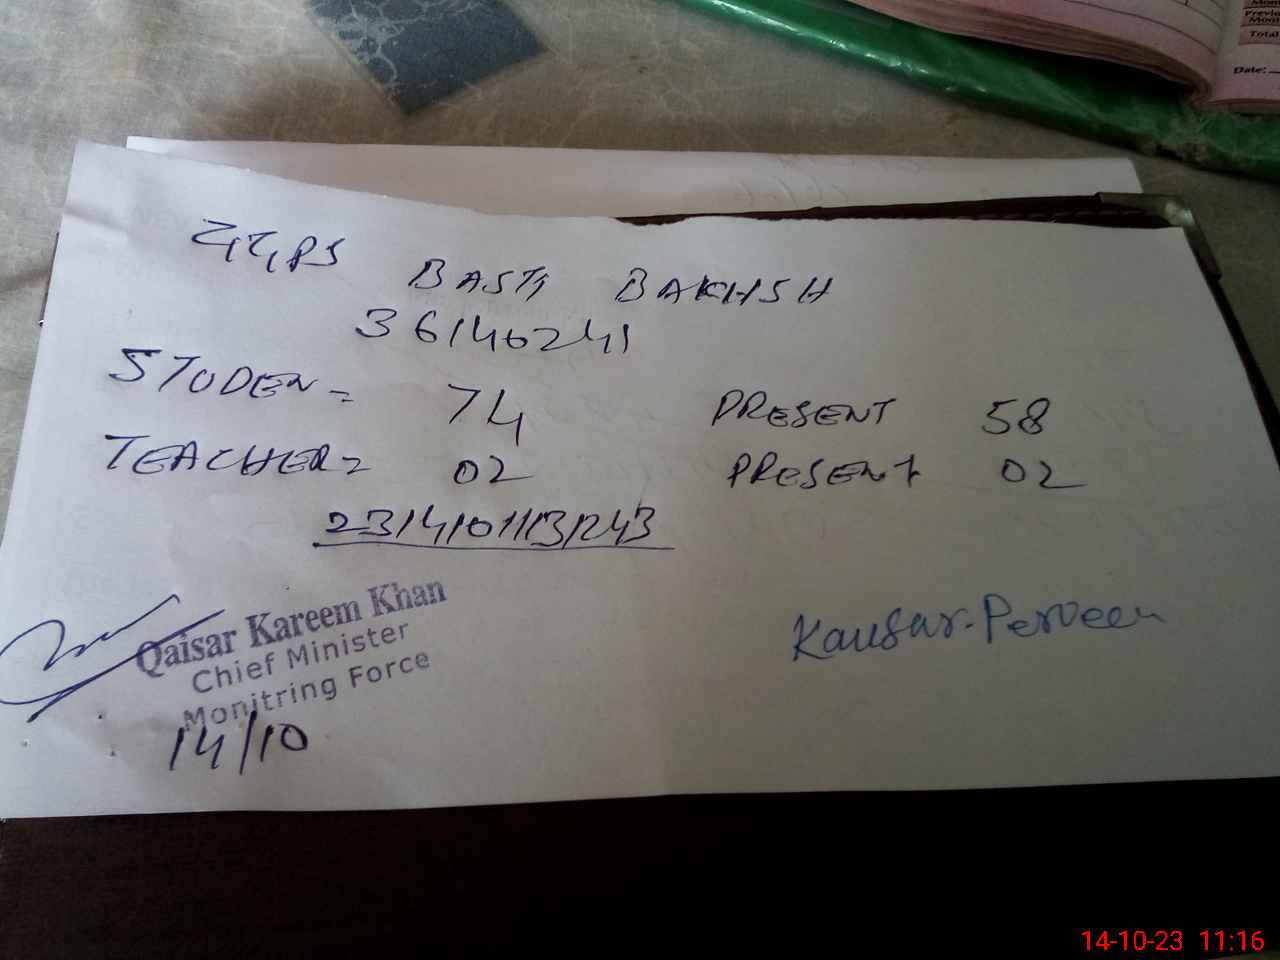 GGPS BASTI BAKHSH
36140241
STUDEN = 74 PRESENT 58
TEACHER = 02 PRESENT 02
Qaisar Kareem Khan
Chief Minister
Monitring Force
14/10
Kausar-Perveen
Previo
Total
Date:
14-10-23 11:16